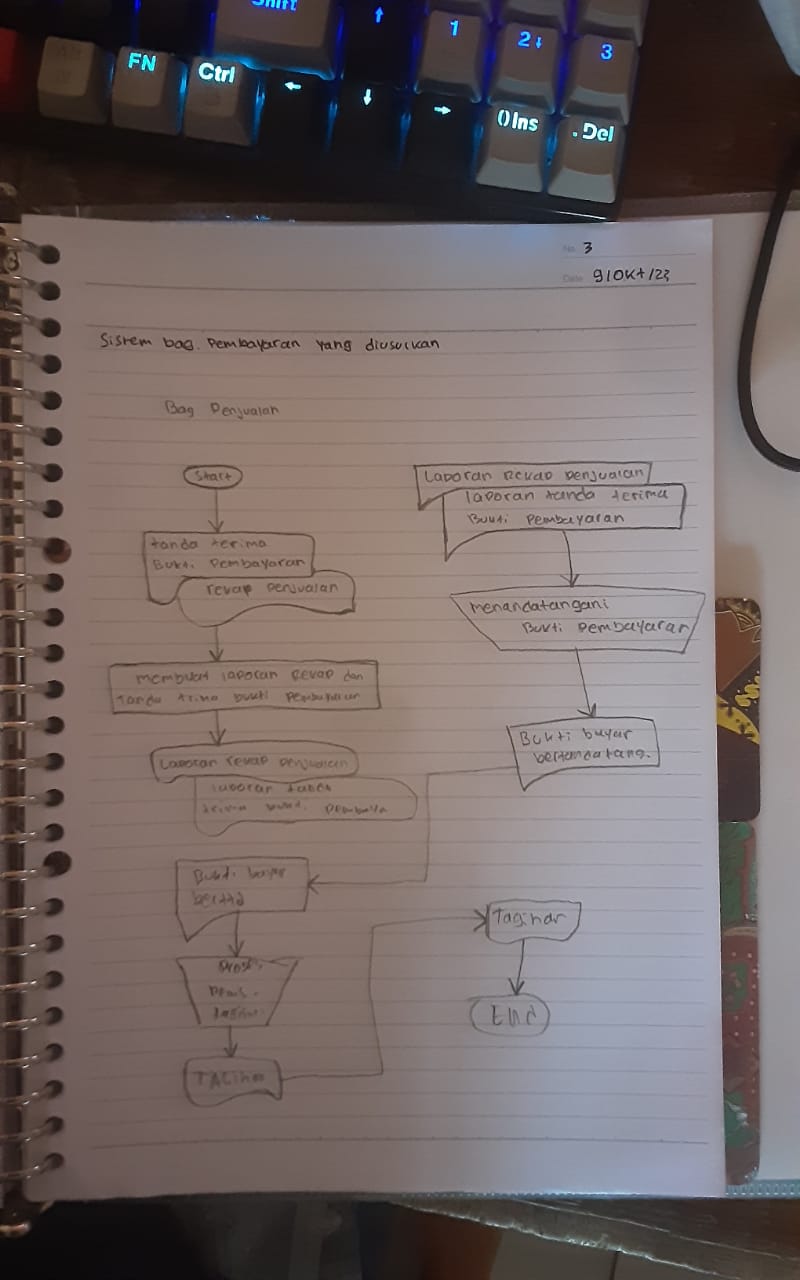 Shift
↑
1
2↓
3
FN
Ctrl
←
↓
→
0Ins
.Del
No. 3
Date 9/Okt/23
Sistem bag. Pembayaran yang diusulkan
Bag Penjualan
Start
tanda terima
Bukti Pembayaran
rekap penjualan
membuat laporan rekap dan
tanda trima bukti pembayaran
Laporan rekap penjualan
laporan tanda
Bukti bayar
TAGihan
Laporan rekap penjualan
laporan tanda terima
Bukti pembayaran
menandatangani
Bukti pembayaran
Bukti bayar
bertandatang.
Tagihan
End